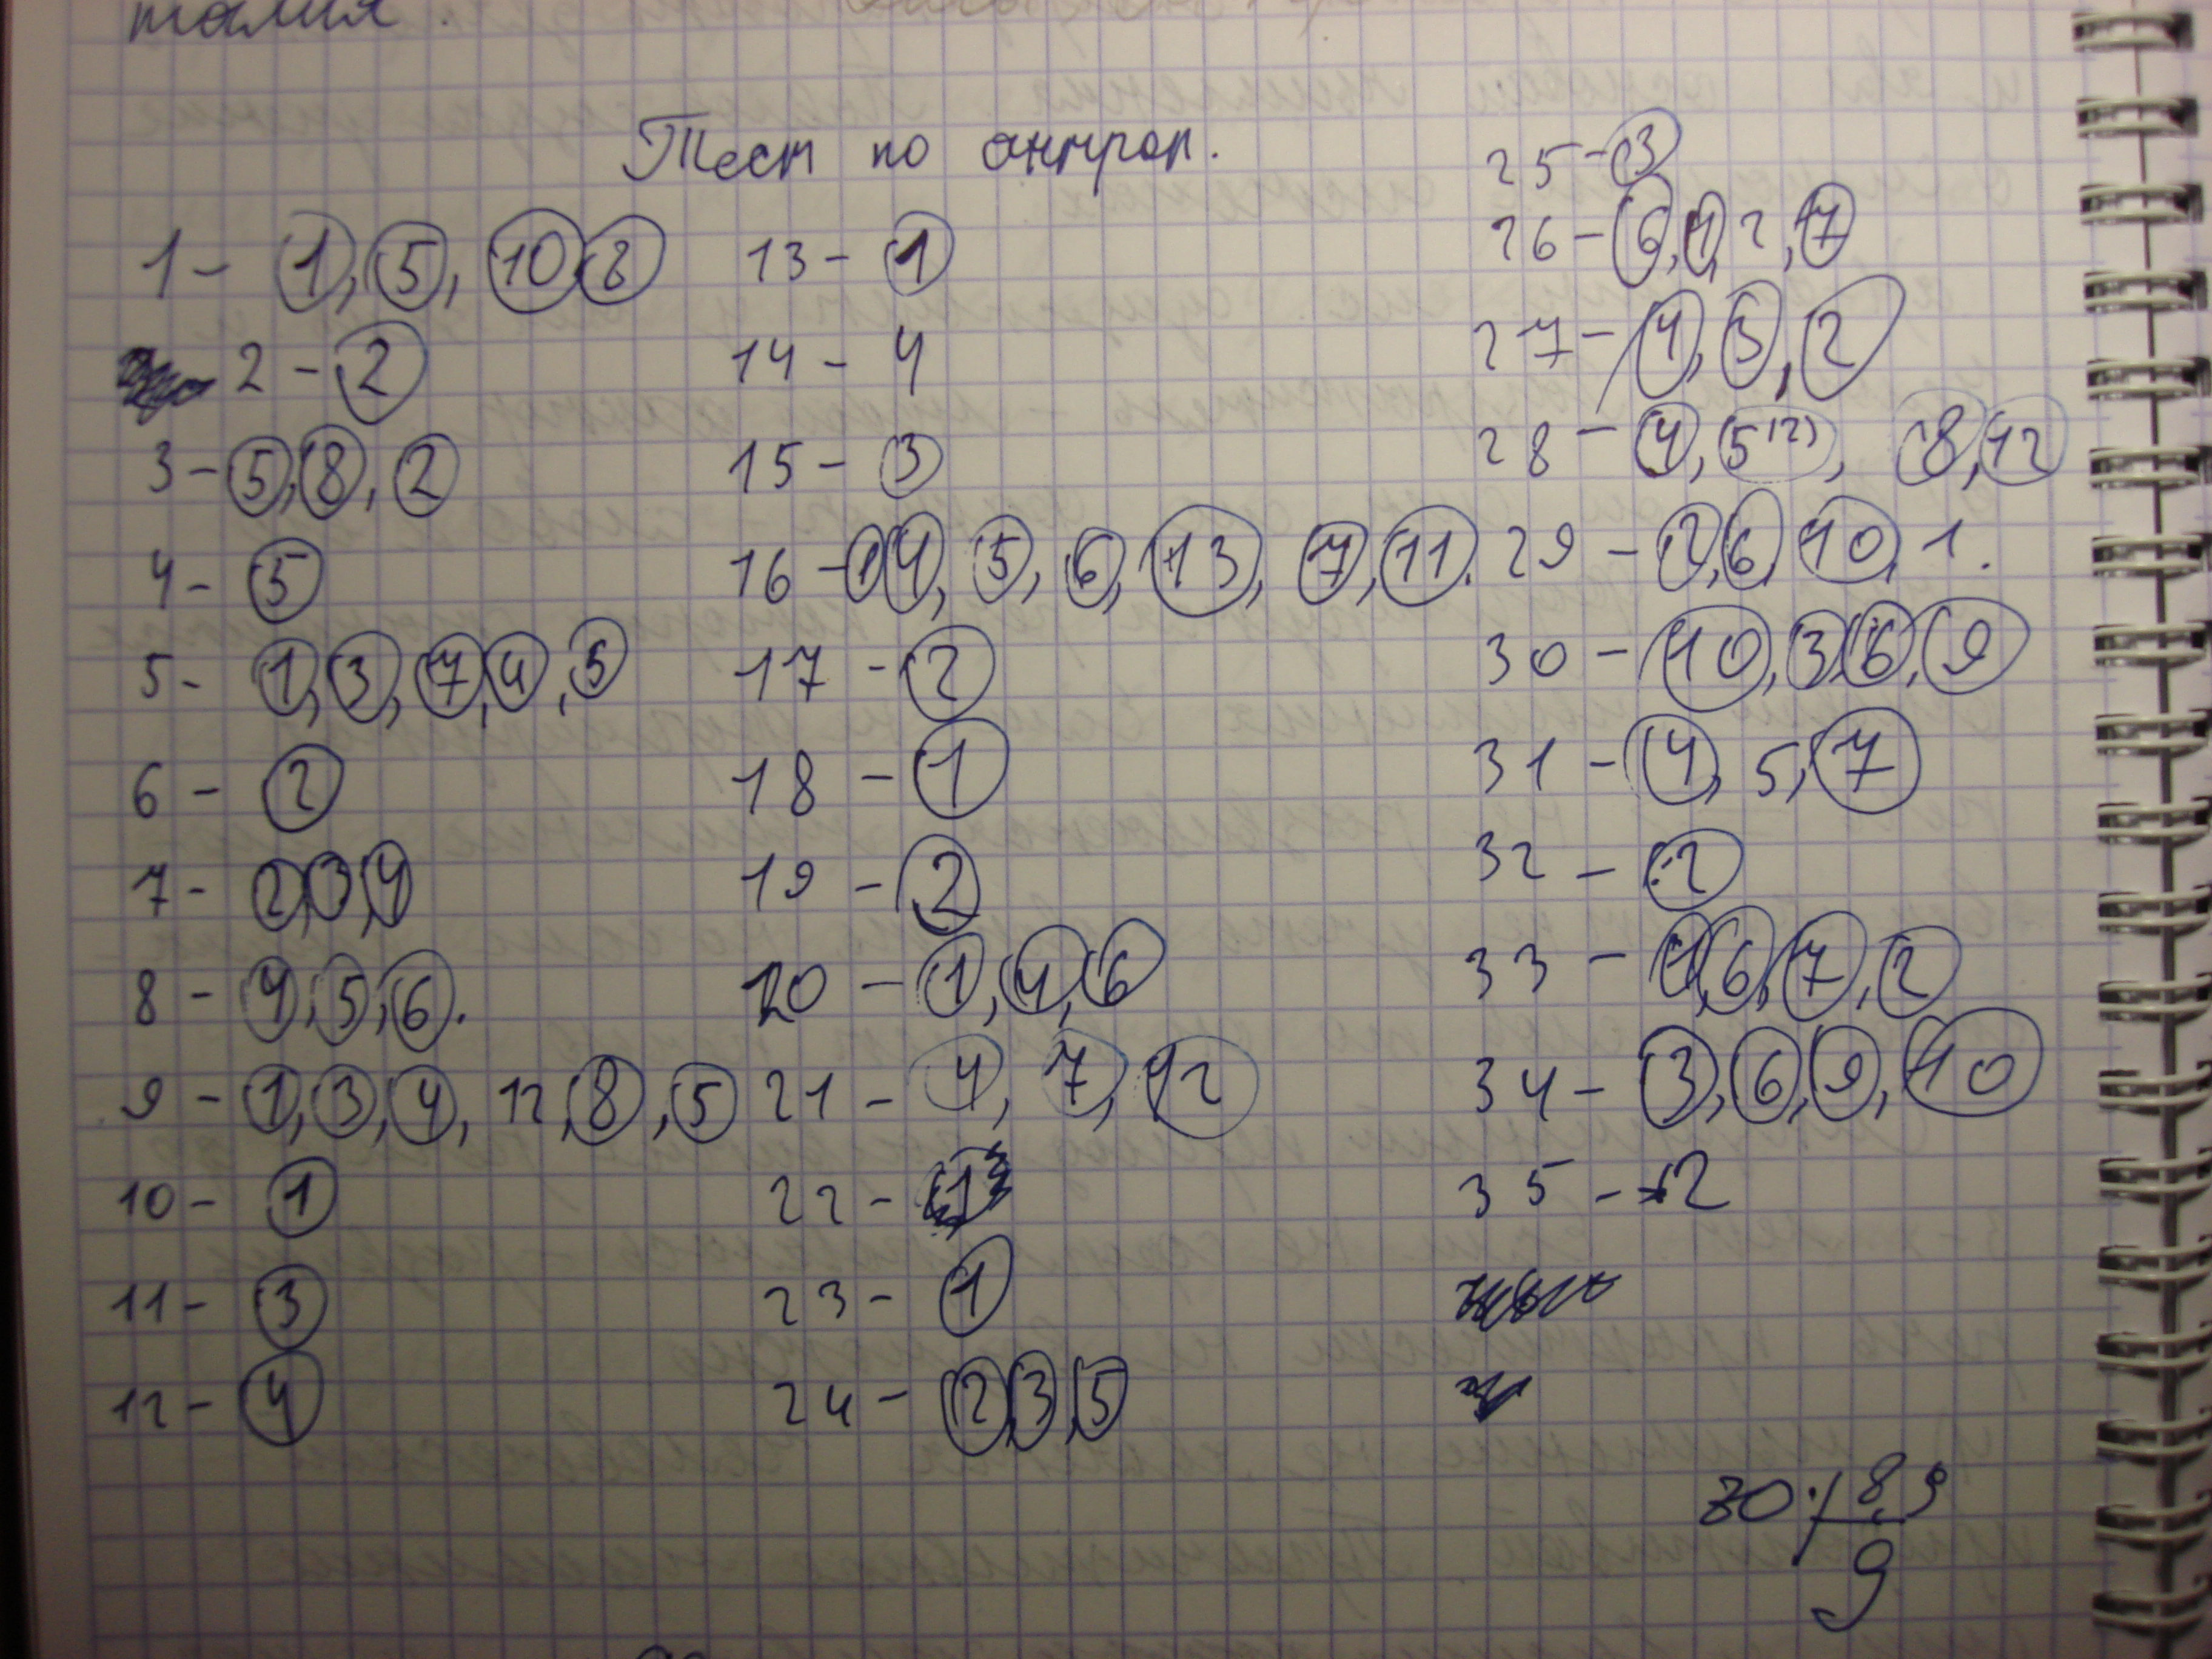 талия.
Тест по антроп.
1 - 1, 5, 10, 8
2 - 2
3 - 5, 8, 2
4 - 5
5 - 1, 3, 7, 4, 5
6 - 2
7 - 2, 3, 4
8 - 4, 5, 6.
9 - 1, 3, 4, 12, 8, 5
10 - 1
11 - 3
12 - 4
13 - 1
14 - 4
15 - 3
16 - 1, 4, 5, 6, 13, 7, 11.
17 - 2
18 - 1
19 - 2
20 - 1, 4, 6
21 - 4, 7, 12
22 - 1
23 - 1
24 - 2, 3, 5
25 - 3
26 - 6, 1, 2, 7
27 - 4, 3, 2
28 - 4, 5 12), 8, 12
29 - 2, 6, 10, 1.
30 - 10, 3, 6, 9
31 - 4, 5, 7
32 - 2
33 - 1, 6, 7, 2
34 - 3, 6, 9, 10
35 - 2
8,9
9